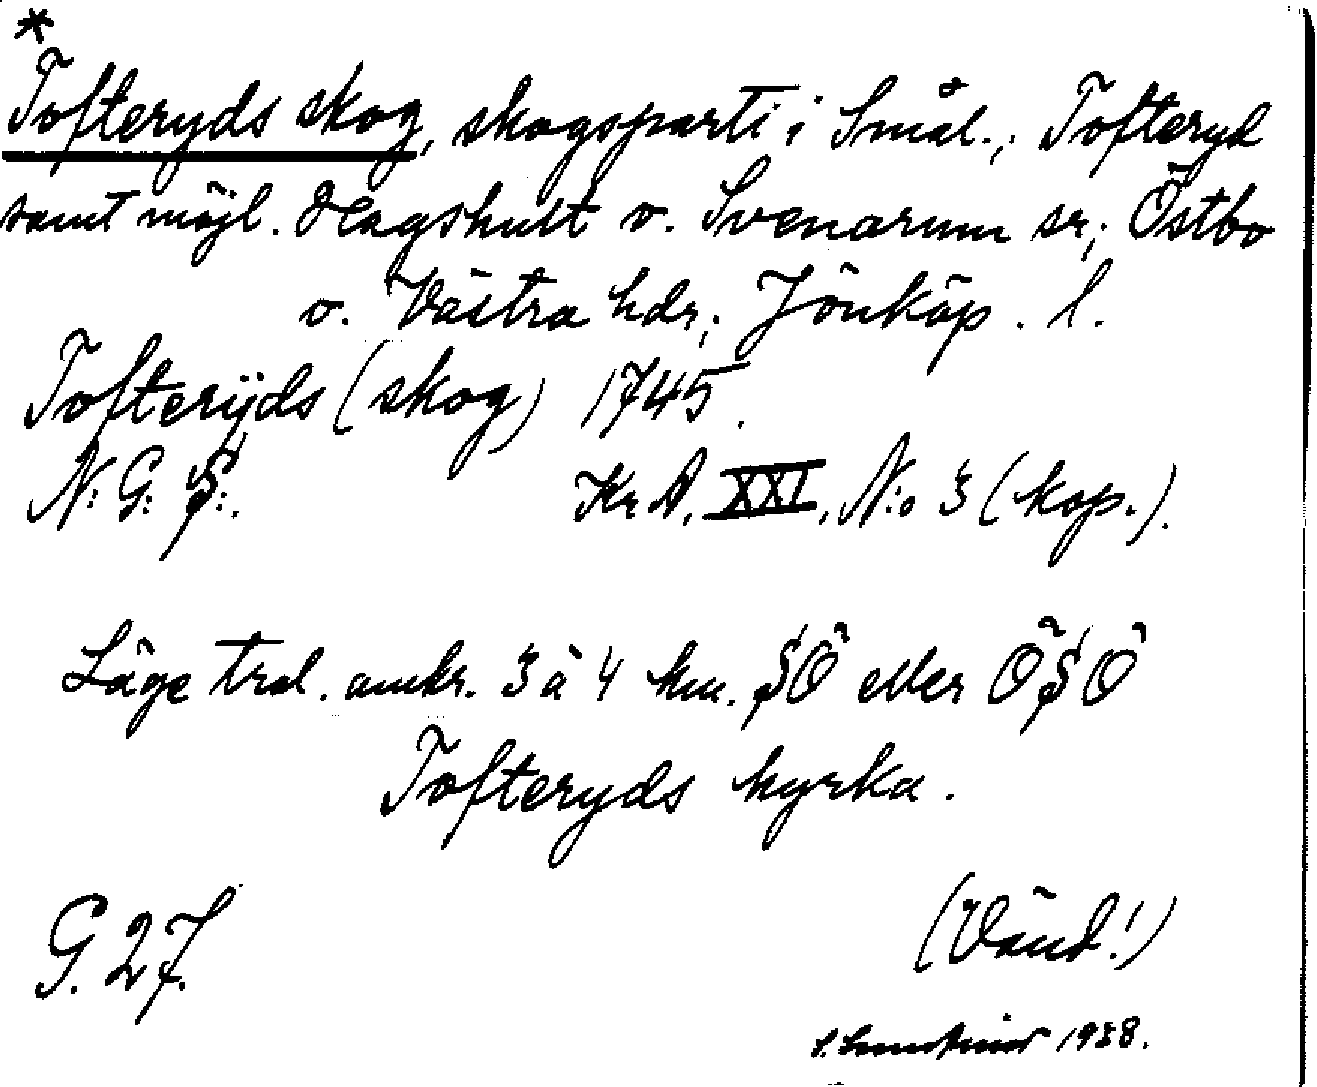 *
Tofteryds skog, skogsparti i Smål.; Tofteryd
samt möjl. Hagshult o. Svenarum sr; Östbo
o. Västra hdr; Jönköp. l.
Tofterÿds (skog) 1745.
N: G: S:.     Kr A, XXI, N:o 3 (kop.).
Läge trol. omkr. 3 à 4 km. SÖ eller ÖSÖ
Tofteryds kyrka.
G. 27.     (Vänd!)
1938.